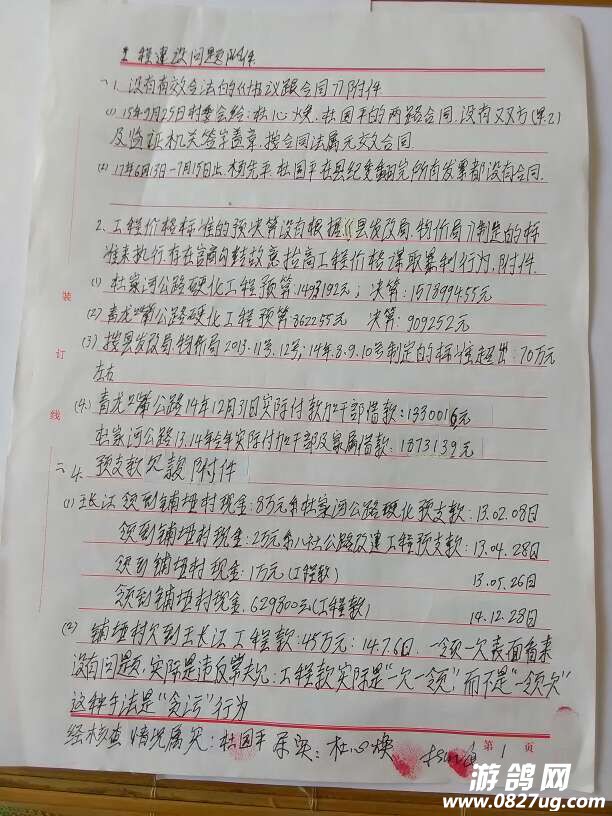 工程建设问题附件
一1. 没有有效合法的协议跟合同》附件
(1) 15年9月25日村委会给:杜心焕、杜国平的两路合同.没有双方(甲乙)
及验证机关签字盖章.按合同法属无效合同.
(2) 17年6月13日-7月15日止.杨先平.杜国平在县纪委翻完所有发票都没有合同.
2. 工程价格标准的预决算没有根据《县发改局.物价局》制定的标
准来执行.存在官商勾结故意抬高工程价格谋取暴利行为.附件.
(1) 杜家河公路硬化工程预算:1493192元;决算:1578994.55元
(2) 青龙嘴公路硬化工程预算:862255元 决算:909252元
(3) 按县发改局.物价局2013.11号.12号;14年.8.9.10号制定的标准超出:70万元
左右
(4) 青龙嘴公路14年12月31日实际付款加干部借款:1330016元
杜家河公路13.14年全年实际付加干部及家属借款:1873139元
二4. 预支款欠款附件
(1) 王长江 领到铺垭村现金:8万元系杜家河公路硬化预支款:13.02.08日
领到铺垭村现金:2万元系八社公路改建工程预支款:13.04.28日
领到铺垭村现金:1万元(工程款) 13.05.26日
领到铺垭村现金.629800元(工程款) 14.12.28日
(2) 铺垭村欠到王长江工程款:45万元:14.7.6日.一领一欠表面看来
没有问题.实际是违反常规:工程款实际是"一欠一领"而不是"一领一欠"
这种手法是"贪污"行为
经核查情况属实:杜国平 属实:杜心焕
装
订
线
第 1 页
游鸽网
www.0827ug.com